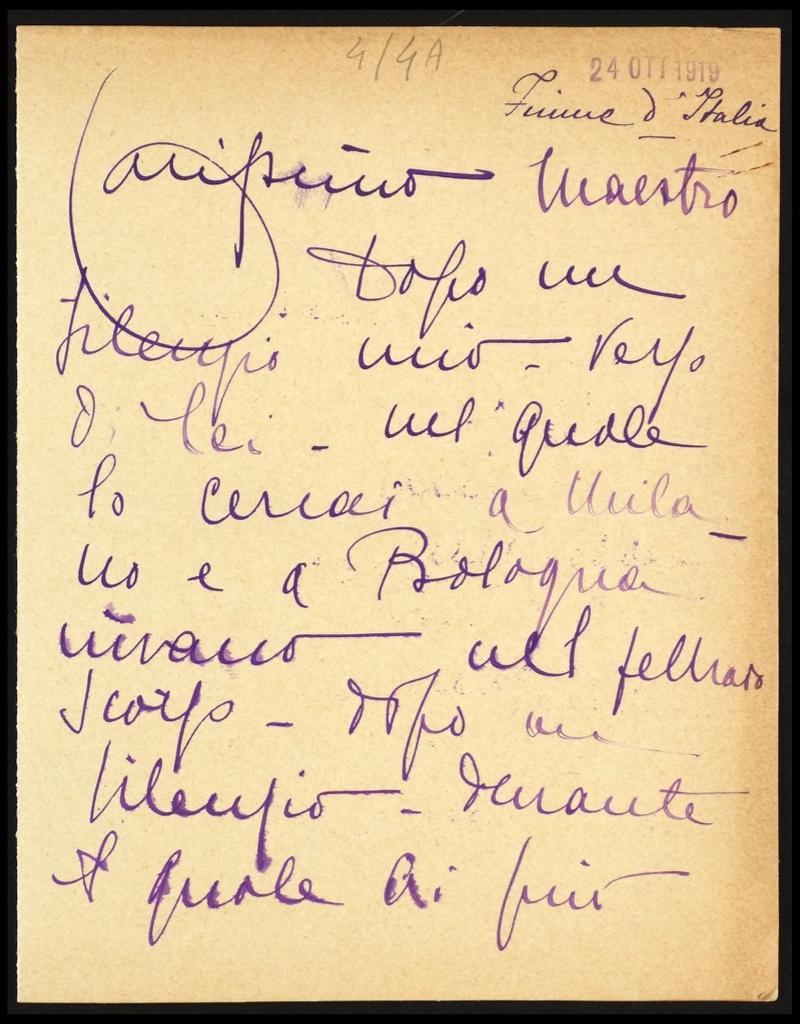 4/4A
24 OTT 1919
Fiume d'Italia
Carissimo Maestro
Dopo un
silenzio mio - verso
di Lei - nel quale
lo cercai a Mila-
no e a Bologna
invano nel febbraio
scorso - dopo un
silenzio - durante
il quale Lei finì